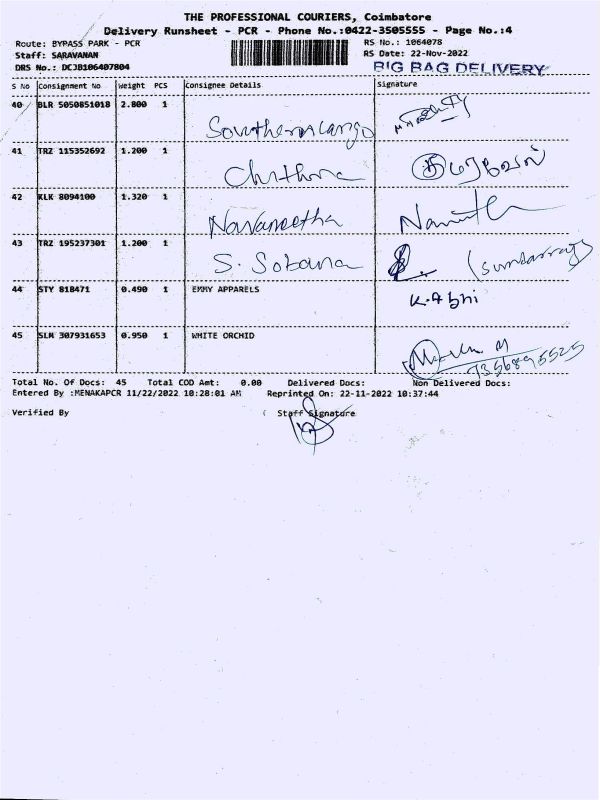 THE PROFESSIONAL COURIERS, Coimbatore
Delivery Runsheet - PCR - Phone No.:0422-3505555 - Page No.:4
Route: BYPASS PARK - PCR
RS No.: 1064078
Staff: SARAVANAN
RS Date: 22-Nov-2022
DRS No.: DCJB106407804
BIG BAG DELIVERY
S No Consignment No Weight PCS Consignee Details Signature
40 BLR 5050851018 2.800 1 Southern cargo
41 TRZ 115352692 1.200 1 Chithra
42 KLK 8094100 1.320 1 Navaneetha
43 TRZ 195237301 1.200 1 S. Sobana (Sundarraj)
44 STY 818471 0.490 1 EMMY APPARELS K.Abhi
45 SLM 307931653 0.950 1 WHITE ORCHID
Total No. Of Docs: 45 Total COD Amt: 0.00 Delivered Docs: Non Delivered Docs:
Entered By :MENAKAPCR 11/22/2022 10:28:01 AM Reprinted On: 22-11-2022 10:37:44
Verified By Staff Signature